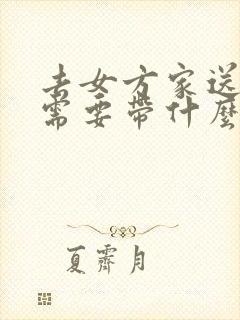 去女方家送
需要带什麼
夏霽月